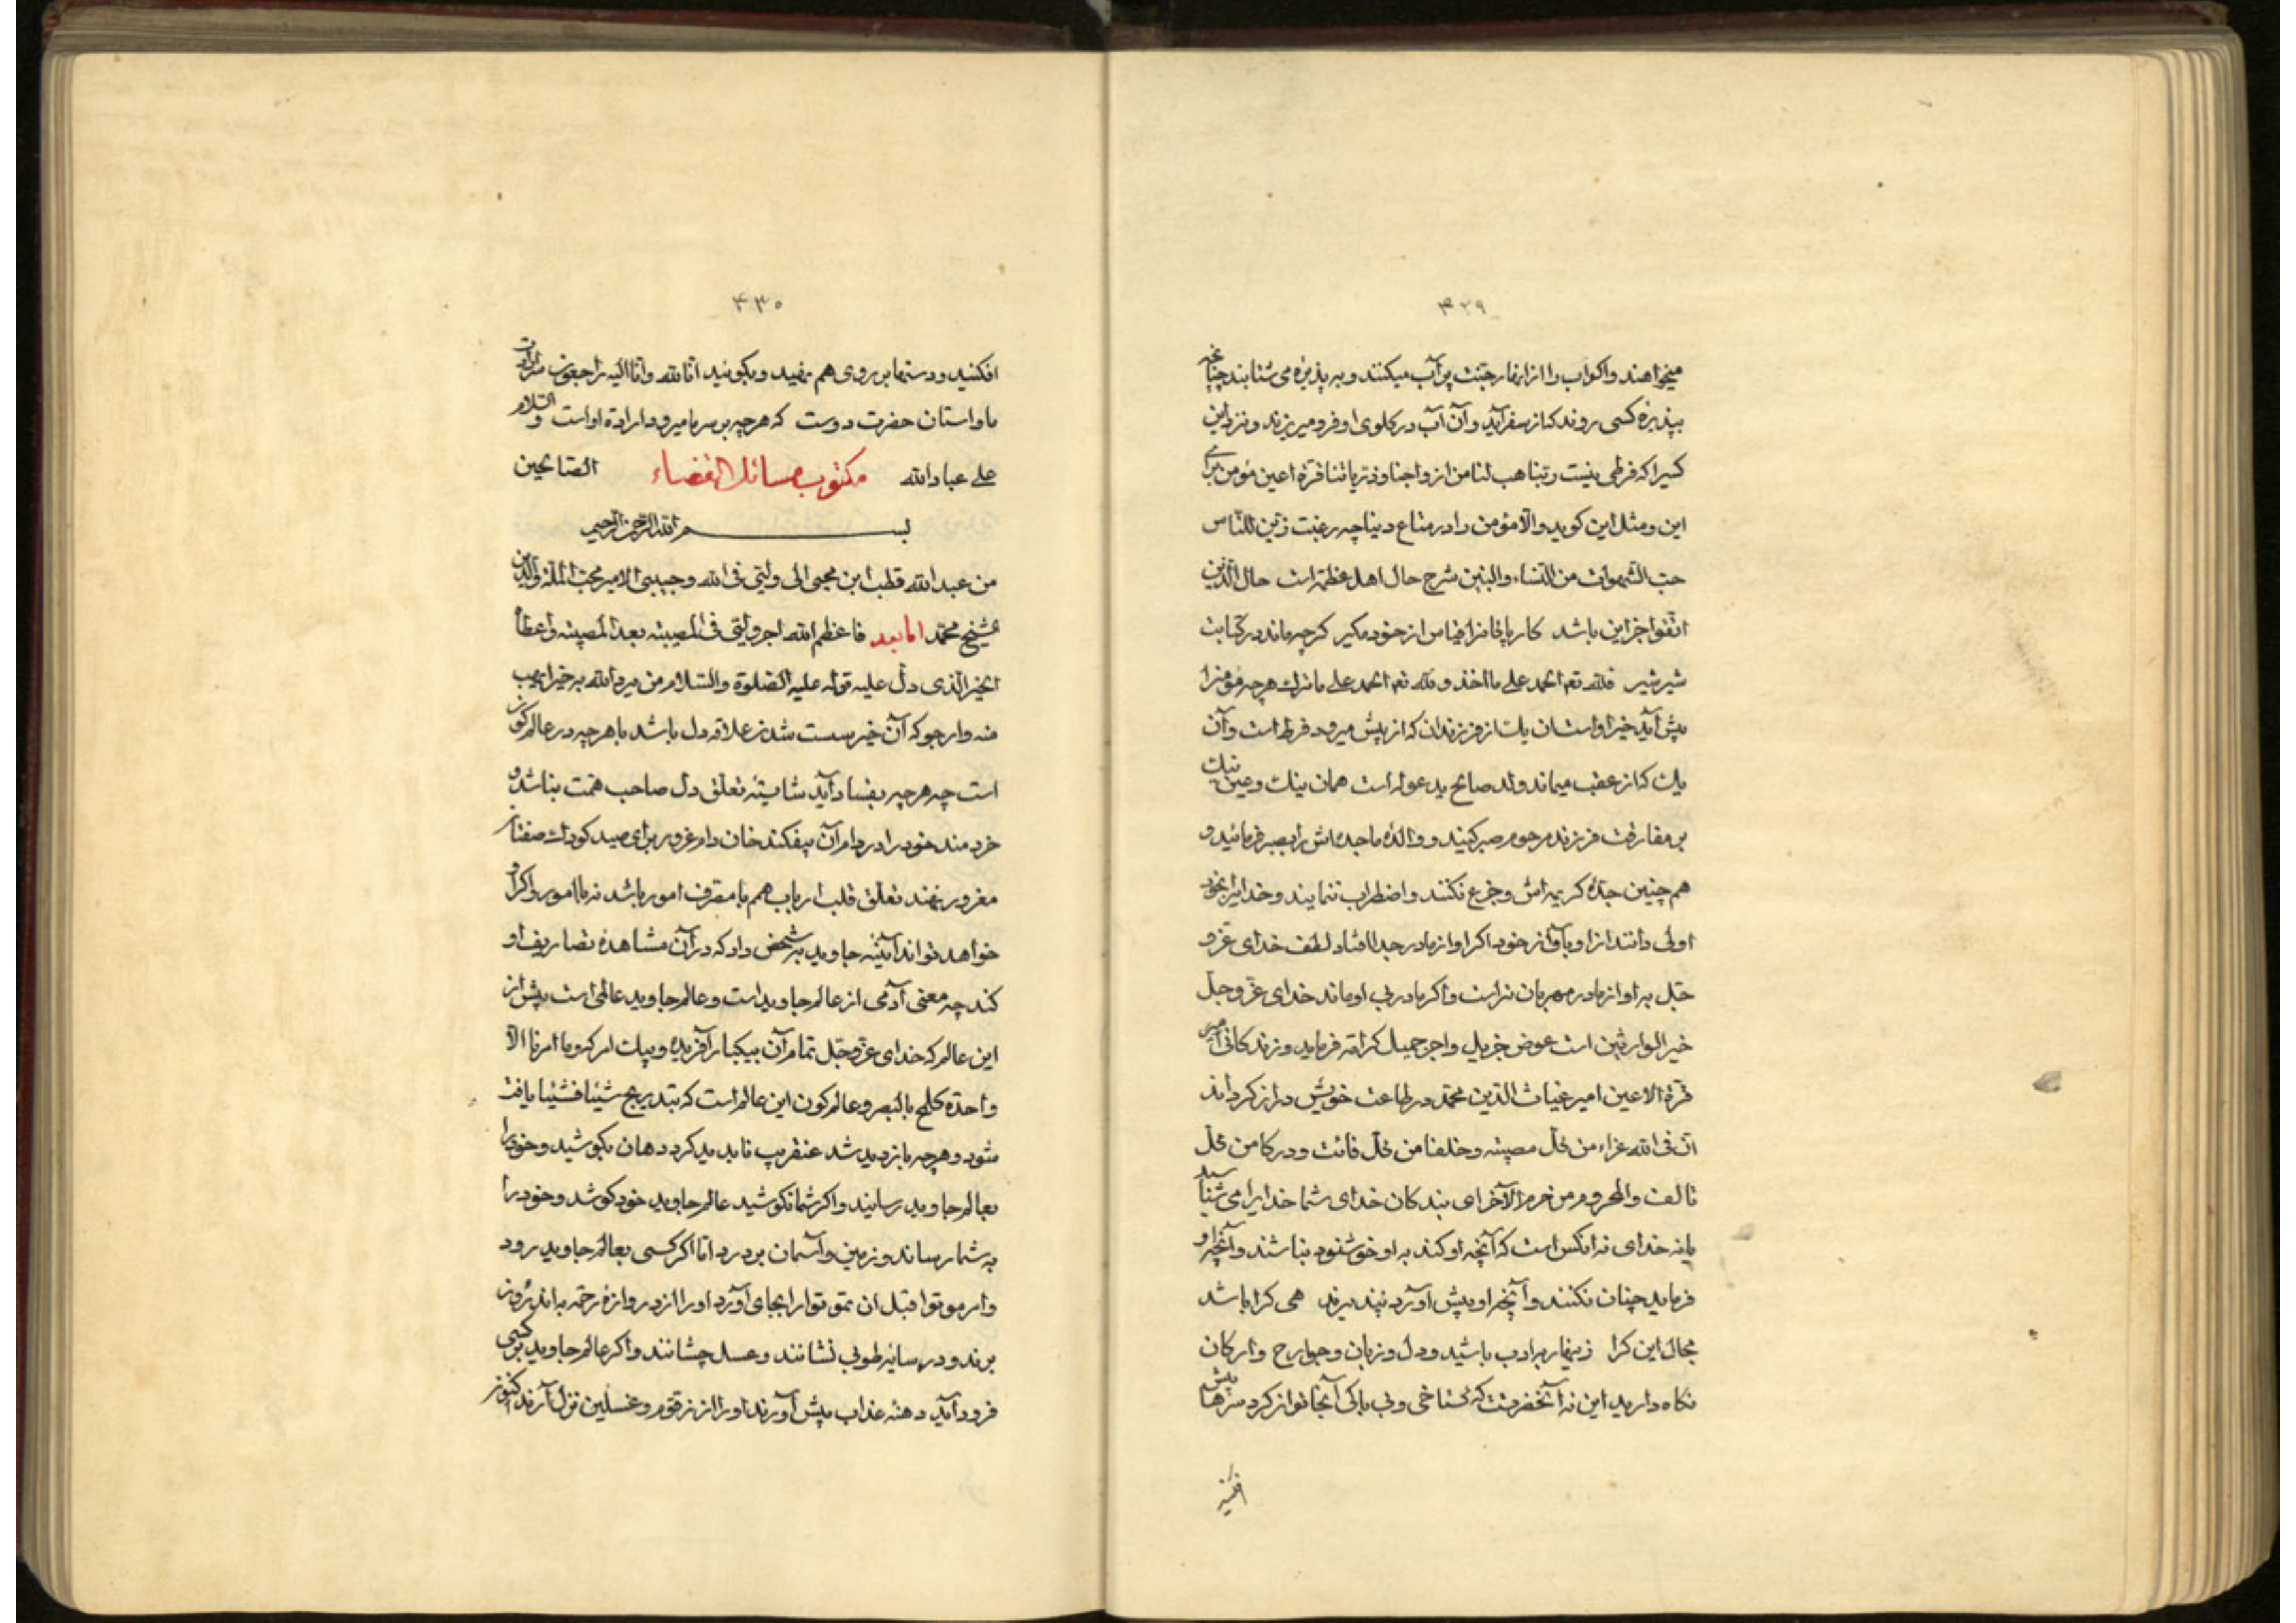 ۴۲۹
میخواهند و اکواب را از انهار جنت پر آب میکنند و به پذیره می شتابند چنانچه
بپذیره کسی روند که از سفر آید و آن آب در کلوی او فرو میریزند و نزد این
کسیرا که فرطی نیست ربنا هب لنا من ازواجنا و ذریاتنا قرة اعین مؤمن برای
این و مثل این کوید و الّا مؤمن را در متاع دنیا چه رغبت زین للناس
حب الشهوات من النساء و البنین شرح حال اهل غفلة است حال الذین
اتقوا جز این باشد کار پاکانرا قیاس از خود مکیر کرچه ماند در کتابت
شیر شیر فلله تعه الحمد علی ما اخذ و لله تعه الحمد علی ما ترك هرچه مؤمنرا
پیش آید خیر او است آن یك از فرزندان که از پیش میرود فرط است و آن
یك که از عقب میماند ولد صالح یدعو له است همان نیك و عین نیك
بر مفارقت فرزند مرحوم صبر کنید و والدۀ ماجده اش را بصبر فرمائید و
هم چنین جدۀ کریمه اش و جزع نکنند و اضطراب ننمایند و خدایرا بخود
اولی دانند از او و باو از خود اکر او از مادر جدا افتاد لطف خدای عزّ و
جلّ به او از مادر مهربان تر است و اکر مادر بی او ماند خدای عزّ و جلّ
خیر الوارثین است عوض جزیل و اجر جمیل کرامة فرماید و زندکانی امیر
قرة الاعین امیر غیاث الدین محمّد در طاعت خویش دراز کرداند
انّ فی الله عزاء من کلّ مصیبته و خلفا من کلّ فائت و درکا من کلّ
تالف و المحروم من حرم الآخر ای بندکان خدای شما خدایرا می شناسید
یا نه خدای نه انکس است که آنچه او کند به او خوشنود نباشند و آنچه او
فرماید چنان نکنند و آنچه او پیش آورد نپذیرند هی کرا باشد
مجال این کرا زینهار بر ادب باشید و دل و زبان و جوارح و ارکان
نکاه دارید این نه آنحضرتست که کستاخی و بی باکی آنجا توان کرد سرها پیش
افکنید
۴۳۰
افکنید و دستها بر روی هم نهید و بکوئید انّا لله و انّا الیه راجعون
ما و استان حضرت دوست که هرچه بر سر ما میرود ارادة او است و السّلام
علی عباد الله الصالحین
مکتوب مسائل القضاء
بسم الله الرّحمن الرّحیم
من عبد الله قطب ابن محیی الی ولیّی فی الله و حبیبی الامیر محبّ الملّة و الدّین
شیخ محمّد اما بعد فاعظم الله اجر ولیّی فی المصیبته بعد المصیبته و اعطاه
الخیر الّذی دلّ علیه قوله علیه الصّلوة و السّلام من یرد الله به خیرا یصب
منه و ارجو که آن خیر سست شدن علاقه دل باشد با هرچه در عالم کون
است چه هرچه بفساد آید شایستۀ تعلّق دل صاحب همّت نباشد و
خردمند خود را در دام آن نیفکند خان دام غرور برای صید کودك صفتان
مغرور نهند تعلّق قلب ارباب همم با مصرف امور باشد نه با امور و اکر او
خواهد تواند آئینۀ جاوید بر شخص داد که در آن مشاهدۀ تصاریف او
کند چه معنی آدمی از عالم جاوید است و عالم جاوید عالمی است پیش از
این عالم که خدای عزّ و جلّ تمام آن بیکبار آفریده و بیك امر کرو ما امرنا الّا
واحدة کلمح بالبصر و عالم کون این عالم است که بتدریج شیئا فشیئا یافت
شود و هرچه باز دید شد عنقریب ناپدید کردد هان بکوشید و خود را
بعالم جاوید رسانید و اکر شما نکوشید عالم جاوید خود کوشد و خود را
به شما رساند و زمین و آسمان بردرد امّا اکر کسی بعالم جاوید رود
و امر موتوا قبل ان تموتوا را بجای آورد او را از دروازۀ رحمة به اندرون
برند و در سایۀ طوبی نشانند و عسل چشانند و اکر عالم جاوید بر کسی
فرود آید دهنه عذاب پیش آورند او را از زقوم و غسلین نزل آرند